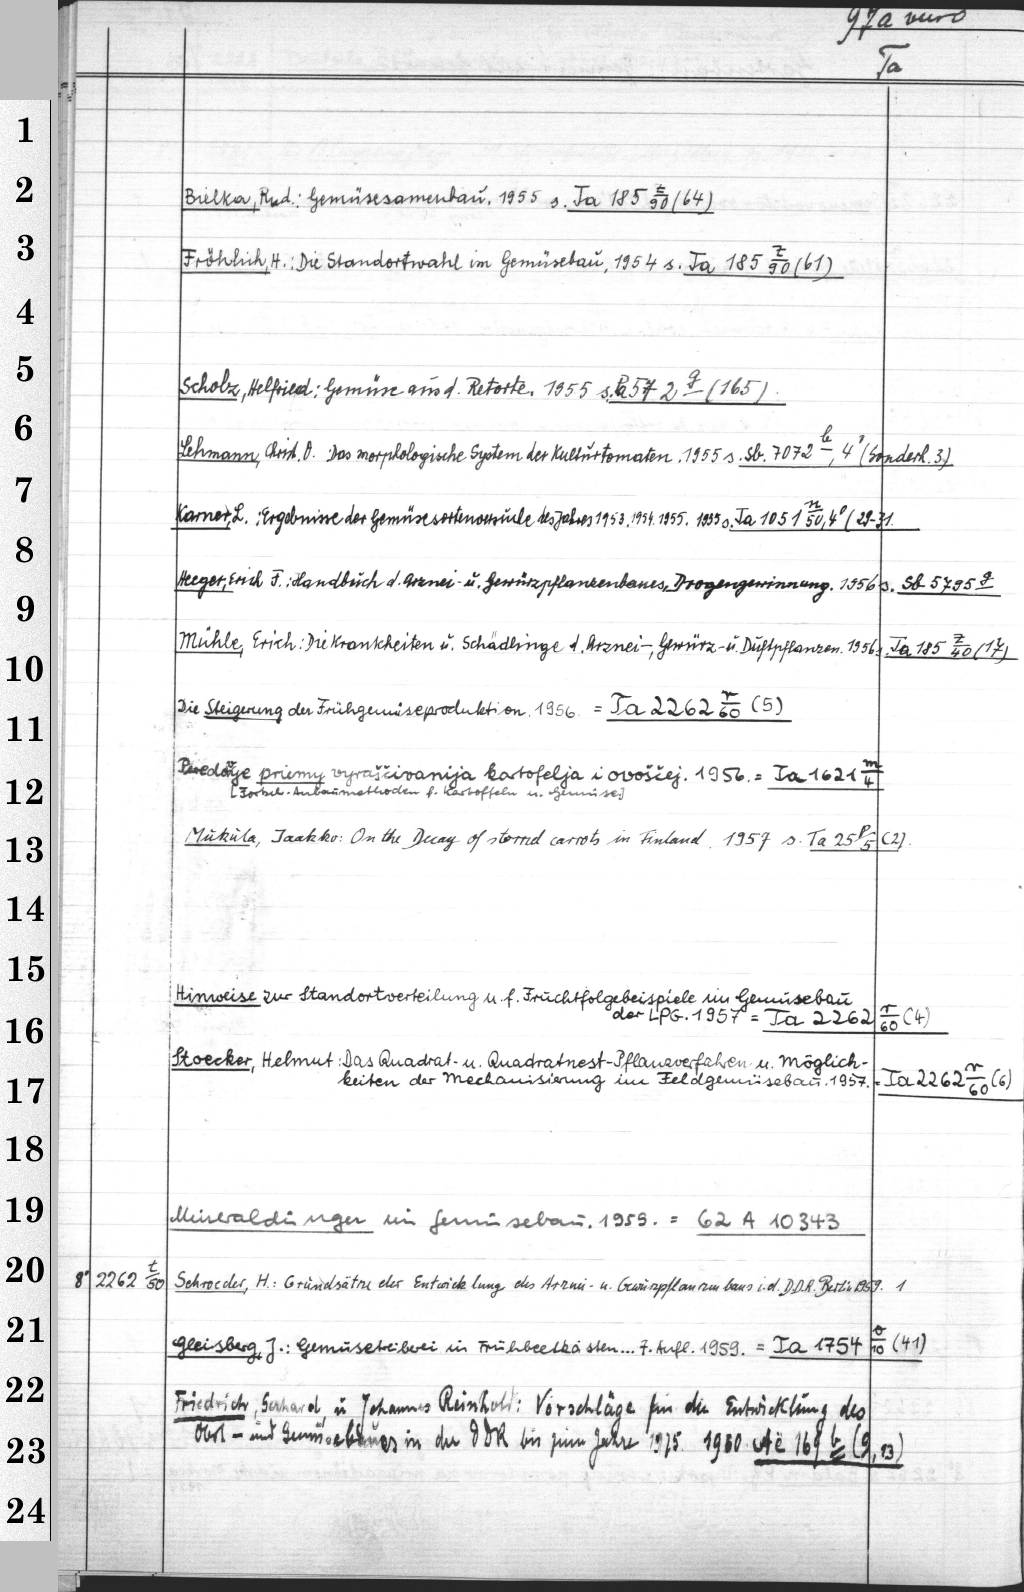 97a
Ta
1
2
Bielka, Rud.: Gemüsesamenbau. 1955 s. Ta 185 t/90 (64)
3
Fröhlich, H.: Die Standortwahl im Gemüsebau, 1954 s. Ta 185 z/90 (61)
4
5
Scholz, Helfried: Gemüse aus d. Retorte. 1955 s. Pa 57 2 q (165).
6
Lehmann, Christ. O. Das morphologische System der Kulturtomaten. 1955 s. Sb. 7072 b, 4° (Sonderh. 3)
7
Karner, L.: Ergebnisse der Gemüsesortenversuche des Jahres 1953. 1954. 1955. 1955 s. Ta 1051 n/50, 4° (29-31
8
Heeger, Erich F.: Handbuch d. Arznei- u. Gewürzpflanzenbaues, Drogengewinnung. 1956 s. Sb 5795 g
9
Mühle, Erich: Die Krankheiten u. Schädlinge d. Arznei-, Gewürz- u. Duftpflanzen. 1956 s. Ta 185 z/40 (17)
10
Die Steigerung der Frühgemüseproduktion. 1956. = Ta 2262 r/60 (5)
11
priemy vyraščivanija kartofelja i ovoščej. 1956. = Ta 1621 m/4
12
[Fortsch. Anbaumethoden f. Kartoffeln u. Gemüse]
13
Mukula, Jaakko: On the Decay of stored carrots in Finland. 1957 s. Ta 25 p/5 (2).
14
15
Hinweise zur Standortverteilung u. f. Fruchtfolgebeispiele im Gemüsebau
16
der LPG. 1957 = Ta 2262 r/60 (4)
Stoecker, Helmut: Das Quadrat- u. Quadratnest-Pflanzverfahren u. Möglich-
17
keiten der Mechanisierung im Feldgemüsebau. 1957. = Ta 2262 r/60 (6)
18
19
Mineraldünger im Gemüsebau. 1959. = 62 A 10343
20
8° 2262 t/50 Schroeder, H.: Grundsätze der Entwicklung des Arznei- u. Gewürzpflanzenbaus i. d. D.D.R. Berlin 1959. 1
21
Gleisberg, J.: Gemüsetreiberei in Frühbeetkästen... 7. Aufl. 1959. = Ta 1754 o/10 (41)
22
Friedrich, Gerhard, u Johannes Reinhold: Vorschläge für die Entwicklung des
23
Obst- und Gemüsebaues in der DDR bis zum Jahre 1975. 1960 Ae 169 b (9, 13)
24